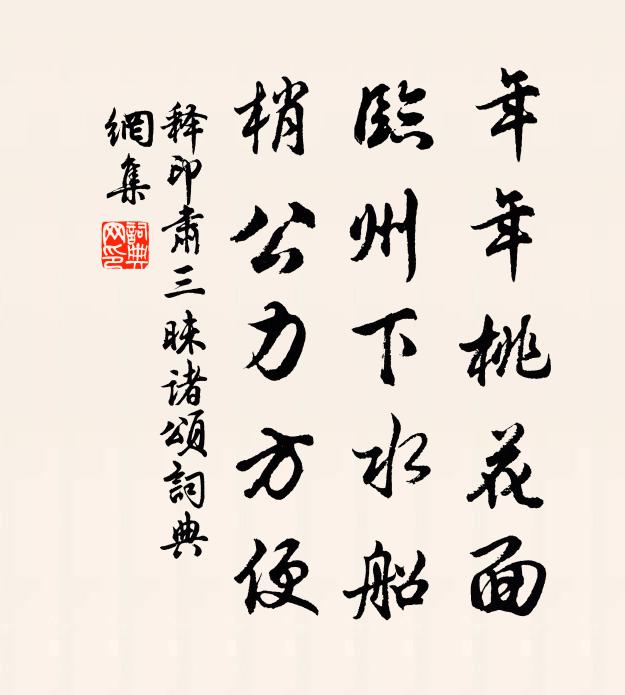 年年桃花面
臨州下水船
梢公力方便
释印肃三昧诸頌詞典
網集
詞典网印